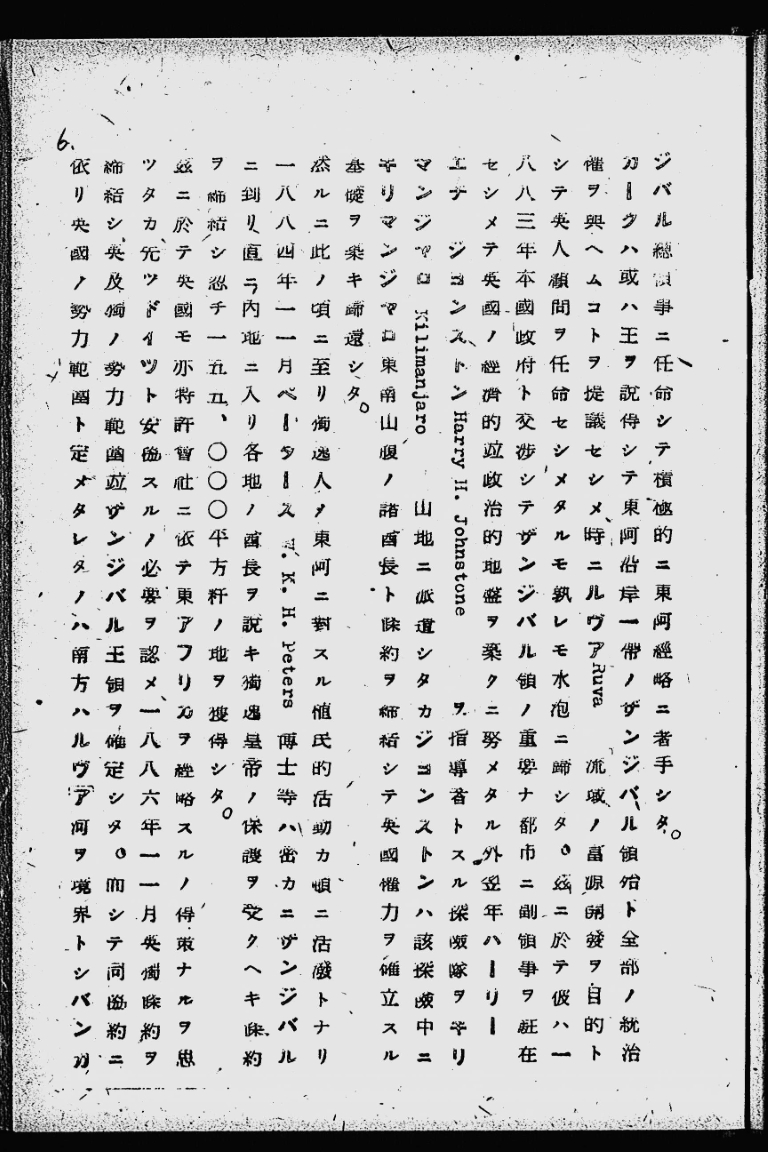 ジバル總領事ニ任命シテ積極的ニ東阿經略ニ着手シタ。
カークハ或ハ王ヲ説得シテ東阿沿岸一帶ノザンジバル領殆ト全部ノ統治
權ヲ與ヘムコトヲ提議セシメ時ニルヴア Ruva 流域ノ富源開發ヲ目的ト
シテ英人顧問ヲ任命セシメタルモ孰レモ水泡ニ歸シタ。玆ニ於テ彼ハ一
八八三年本國政府ト交渉シテザンジバル領ノ重要ナ都市ニ副領事ヲ駐在
セシメテ英國ノ經濟的竝政治的地盤ヲ築クニ努メタル外翌年ハーリー
エチ ジヨンストン Harry H. Johnstone ヲ指導者トスル探檢隊ヲキリ
マンジヤロ Kilimanjaro 山地ニ派遣シタカジヨンストンハ該探檢中ニ
キリマンジヤロ東南山腹ノ諸酋長ト條約ヲ締結シテ英國權力ヲ確立スル
基礎ヲ築キ歸還シタ。
然ルニ此ノ頃ニ至リ獨逸人ノ東阿ニ對スル植民的活動カ頓ニ活潑トナリ
一八八四年一一月ペータース K. H. Peters 博士等ハ密カニザンジバル
ニ到リ直ニ内地ニ入リ各地ノ酋長ヲ説キ獨逸皇帝ノ保護ヲ受クヘキ條約
ヲ締結シ忽チ一五五、〇〇〇平方粁ノ地ヲ獲得シタ。
玆ニ於テ英國モ亦特許會社ニ依テ東アフリカヲ經略スルノ得策ナルヲ思
ツタカ先ツドイツト安協スルノ必要ヲ認メ一八八六年一一月英獨條約ヲ
締結シ英及獨ノ勢力範圍竝ザンジバル王領ヲ確定シタ。而シテ同協約ニ
依リ英國ノ勢力範圍ト定メタレタノハ南方ハルヴア河ヲ境界トシバンガ
6.